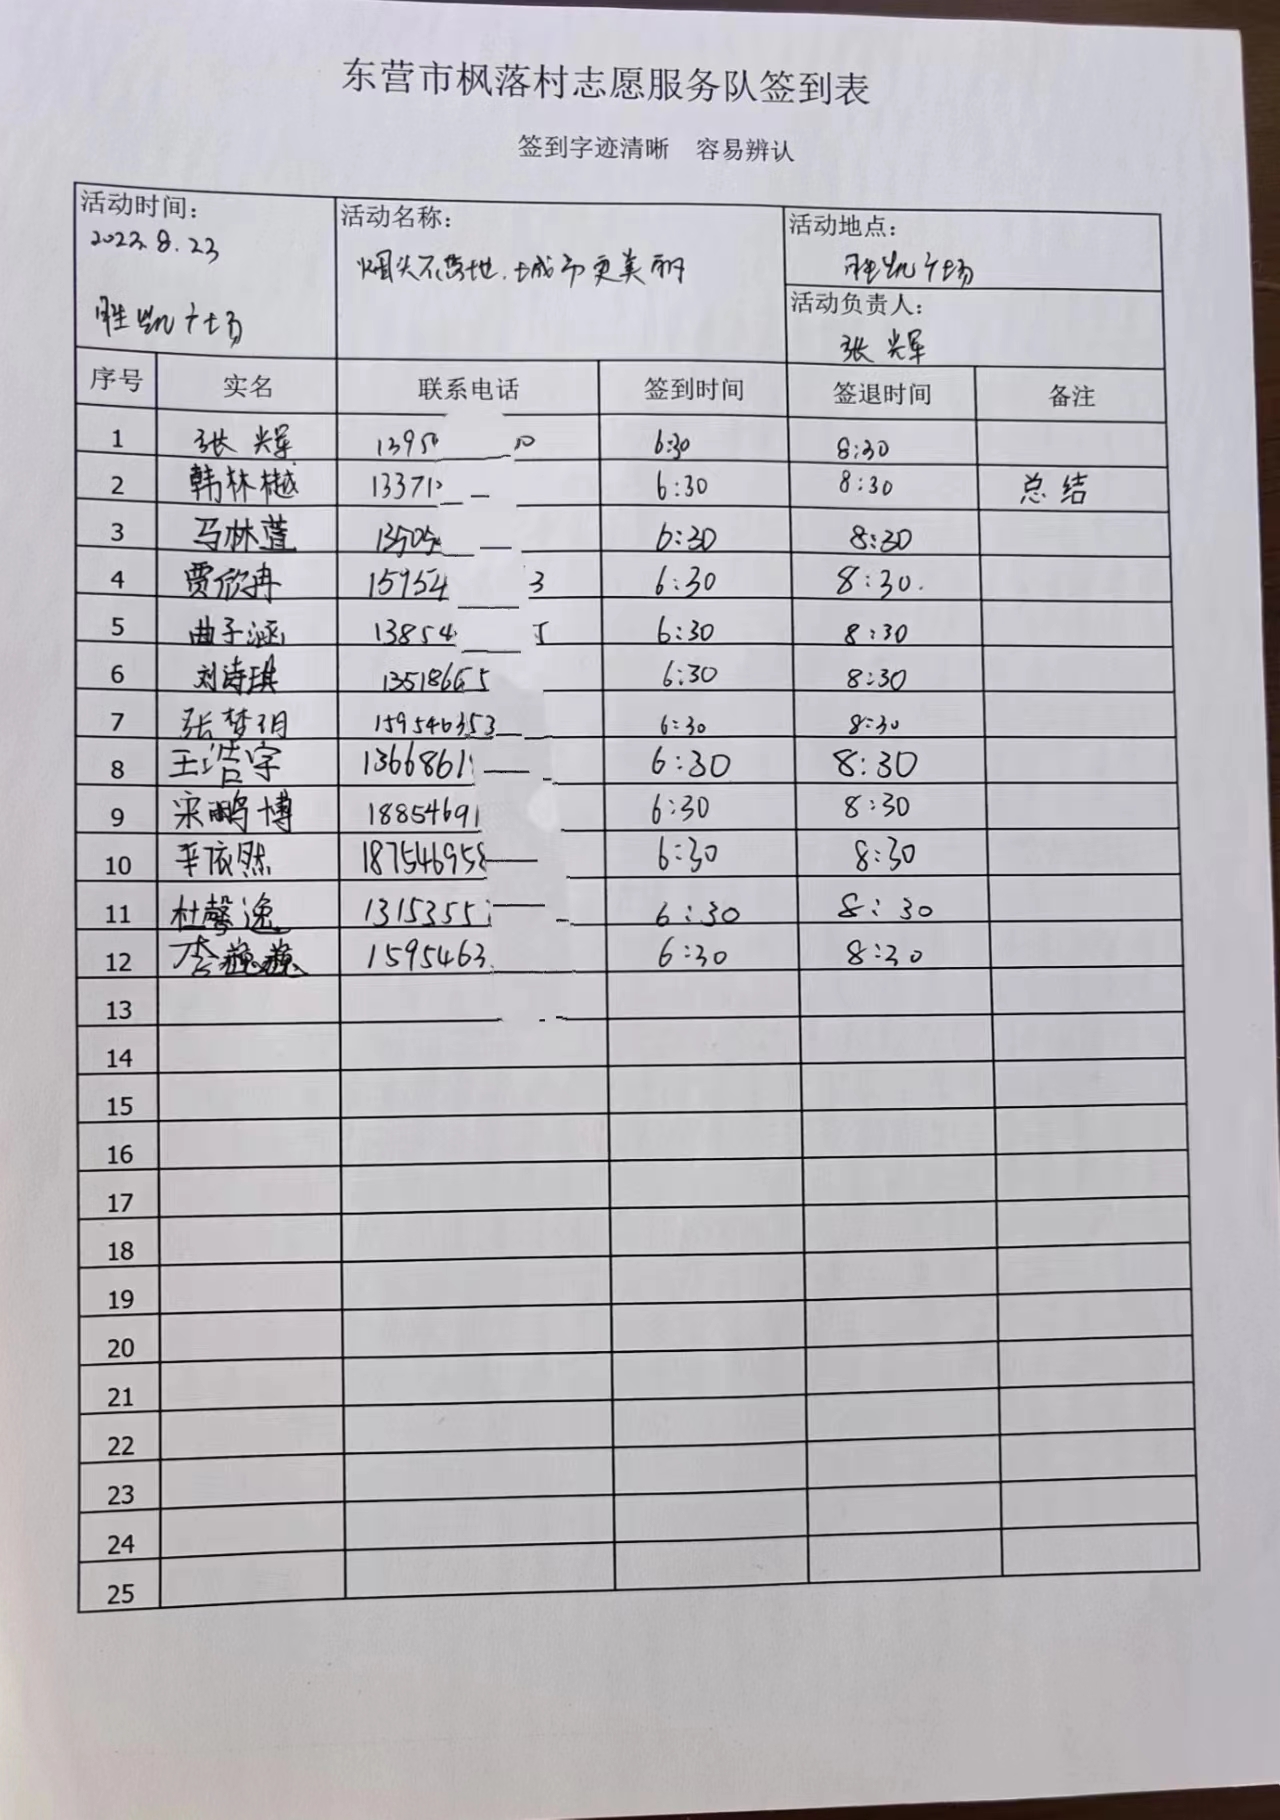 东营市枫落村志愿服务队签到表
签到字迹清晰 容易辨认
活动时间: 活动名称: 活动地点:
2023.8.23 烟头不落地,城市更美丽 胜凯广场
胜凯广场 活动负责人:
张辉
序号 实名 联系电话 签到时间 签退时间 备注
1 张辉 1395 6:30 8:30
2 韩林樾 13371 6:30 8:30 总结
3 马林萱 13505 6:30 8:30
4 贾欣冉 15954 3 6:30 8:30.
5 曲子涵 13854 6:30 8:30
6 刘诗琪 13518665 6:30 8:30
7 张梦玥 159546353 6:30 8:30
8 王浩宇 1366861 6:30 8:30
9 宋鹏博 18854691 6:30 8:30
10 依然 18754695 6:30 8:30
11 杜馨逸 1315355 6:30 8:30
12 李 1595463 6:30 8:30
13
14
15
16
17
18
19
20
21
22
23
24
25